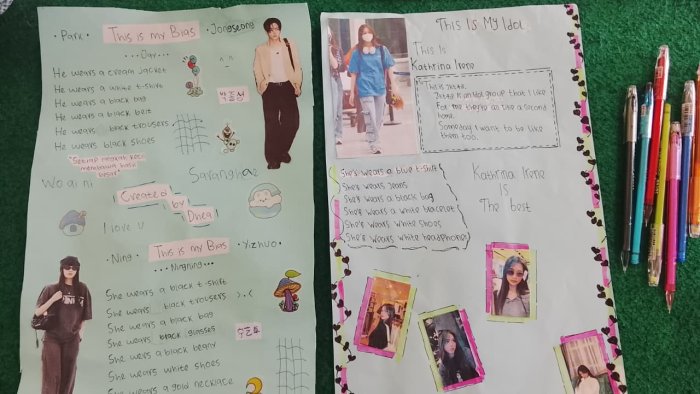 · Park · This is my Bias · Jongseong
... Jay ...
He wears a cream jacket
He wears a white t-shirt
He wears a black bag
He wears a black belt
He wears black trousers
He wears black shoes
박종성
"Setiap langkah kecil
membawa hasil
besar"
Wo ai ni
Saranghae
Created
by
Dhea
I love u
This is my Bias
· Ning ·
· Yizhuo ·
... Ningning ...
She wears a black t-shirt
She wears black trousers
She wears a black bag
She wears black glasses
She wears a black beany
She wears white shoes
She wears a gold necklace
This Is My Idol
This Is
Kathrina Irene
This is
Jeje is an idol group that I like
For me they're as like a second
home.
Someday I want to be like
them too.
She's wears a blue t-shirt
She's wears jeans
She's wears a black bag
She's wears a white bracelet
She's wears white shoes
She's wears white headphones
Kathrina Irene
Is
The best